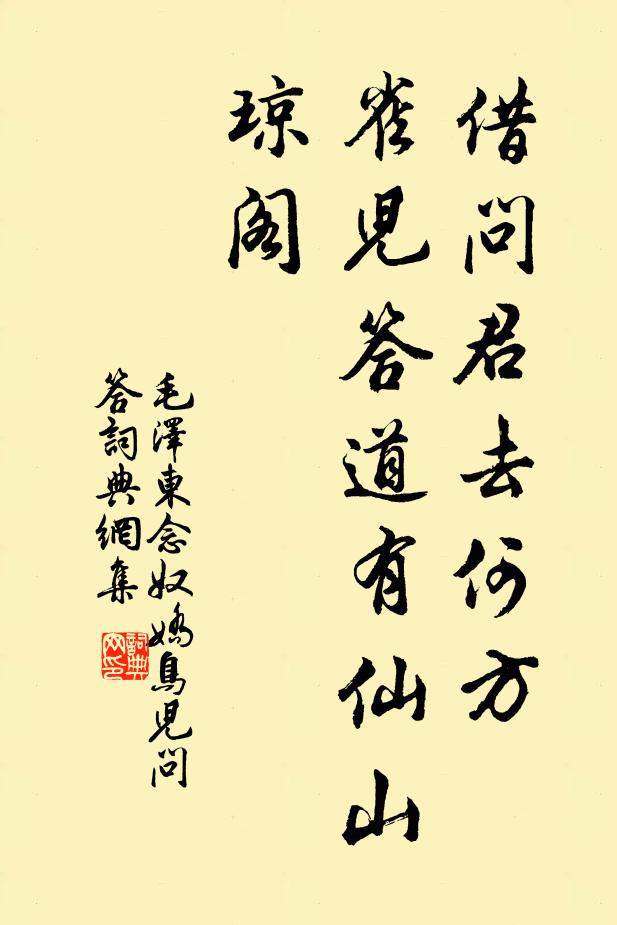 借問君去何方
雀兒答道有仙山
琼阁
毛澤東念奴嬌鳥兒問
答詞典網集
詞典
网印